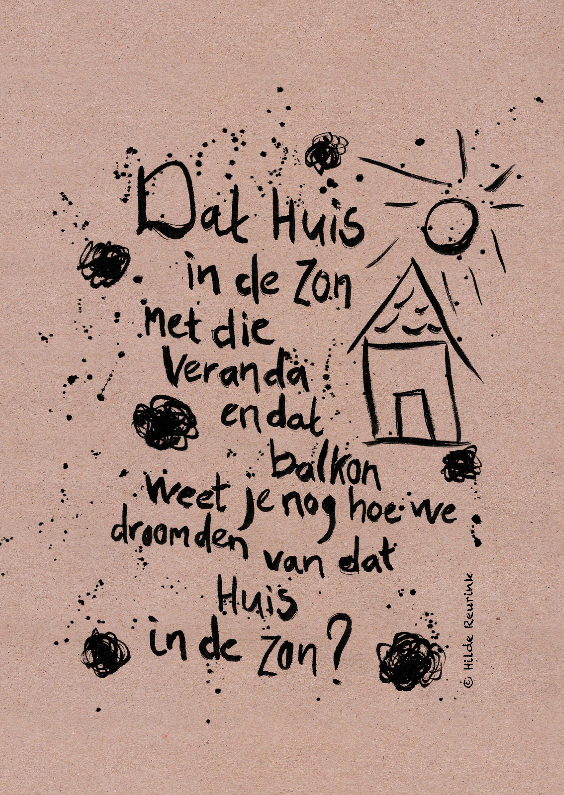 Dat Huis
in de Zon
met die
Veranda
en dat
balkon
Weet je nog hoe we
droomden van dat
Huis
in de Zon?
© Hilde Reurink